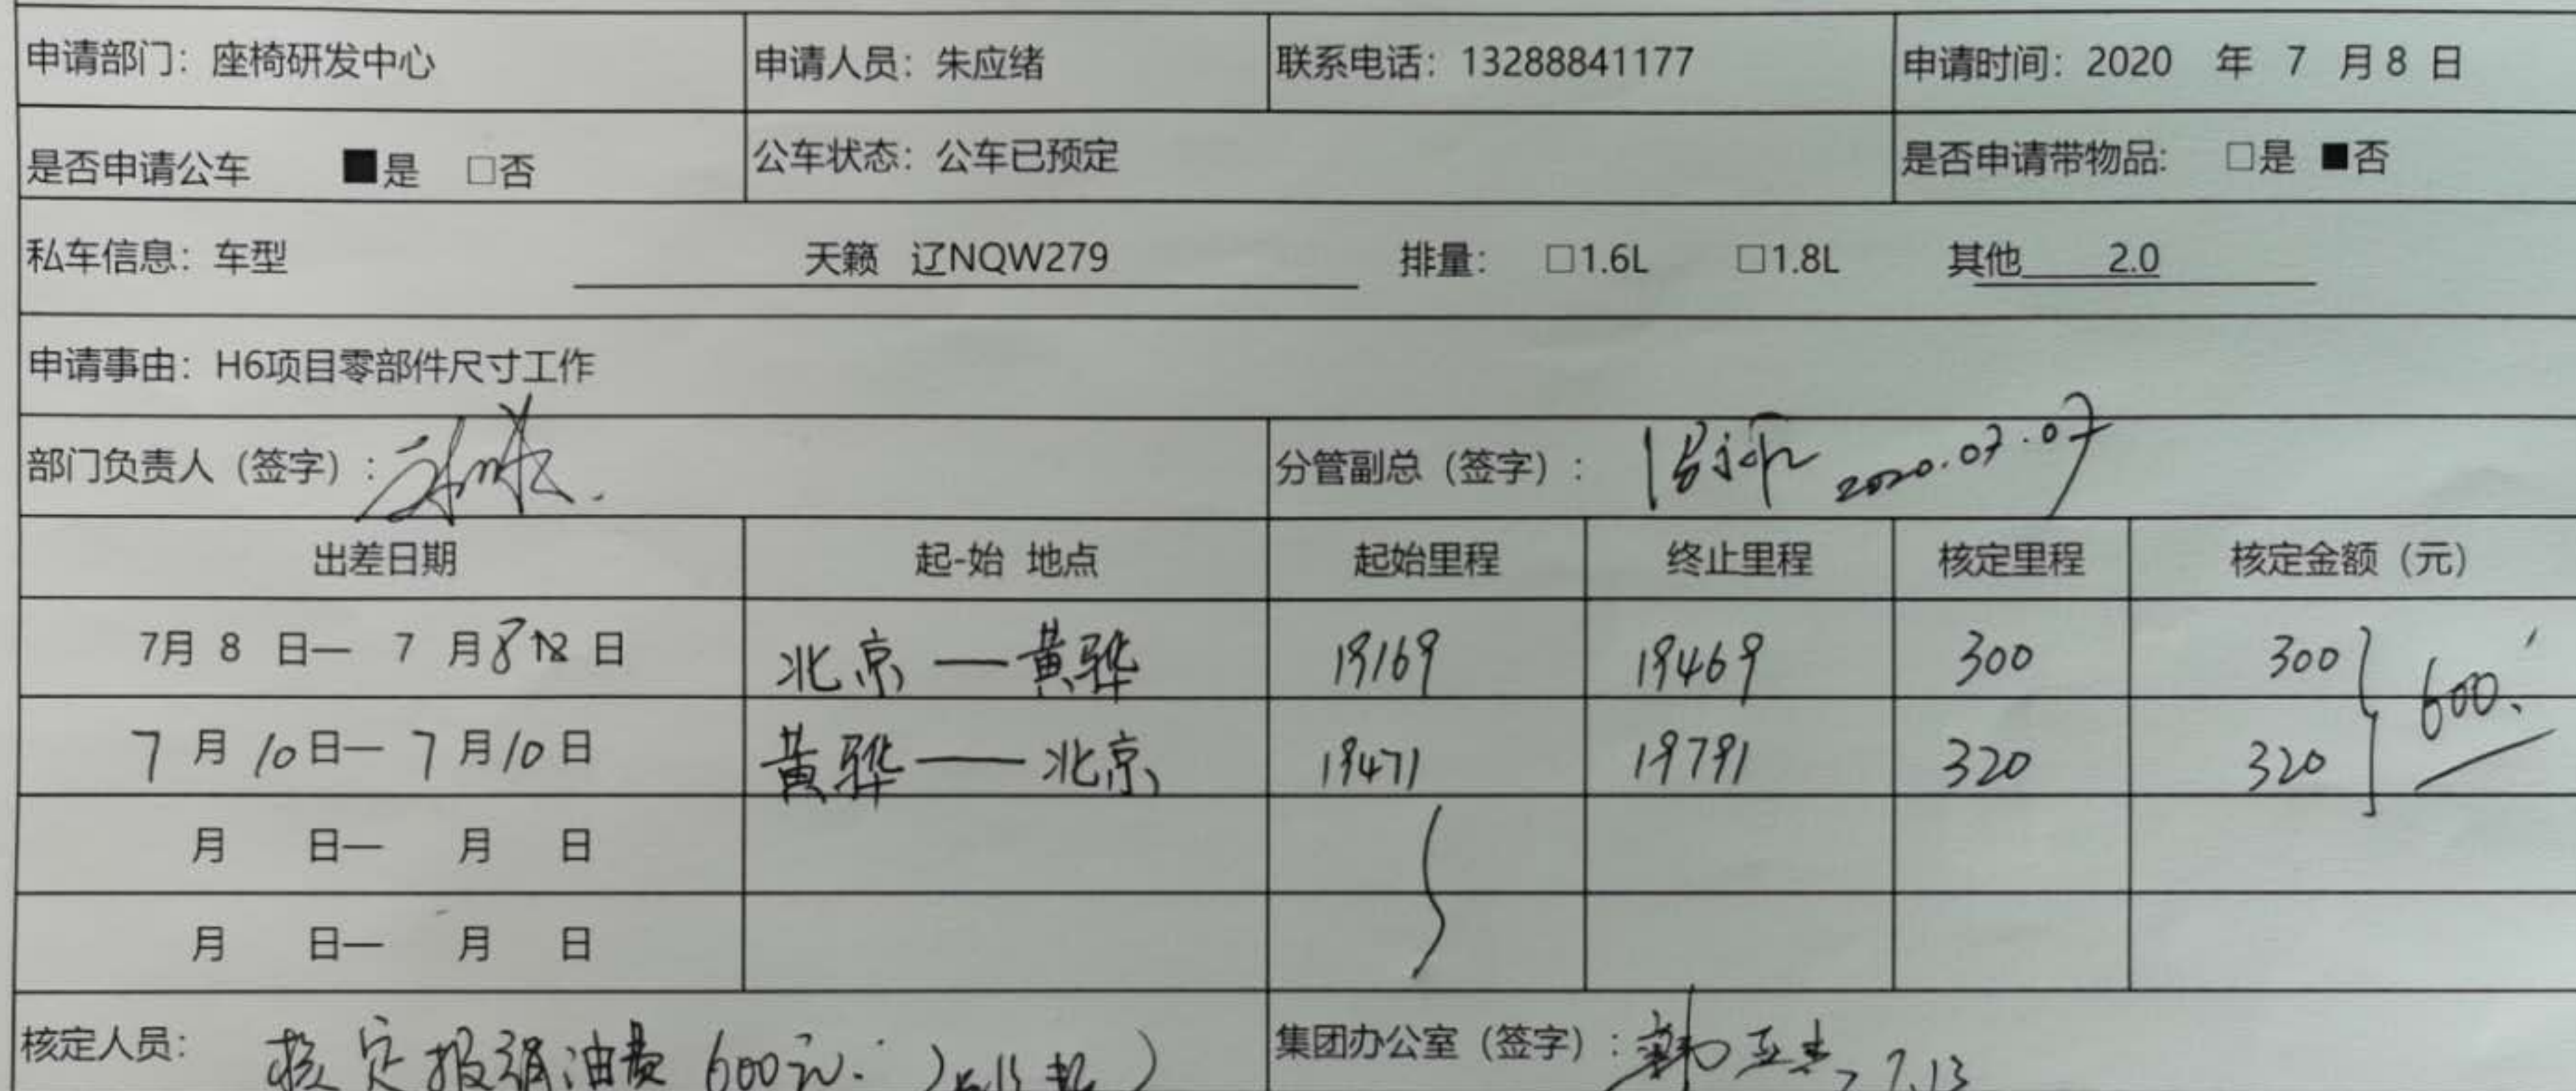 申请部门：座椅研发中心 申请人员：朱应绪 联系电话：13288841177 申请时间：2020 年 7 月 8 日
是否申请公车 ■是 □否 公车状态：公车已预定 是否申请带物品: □是 ■否
私车信息：车型 天籁 辽NQW279 排量： □1.6L □1.8L 其他 2.0
申请事由：H6项目零部件尺寸工作
部门负责人（签字）: 分管副总（签字）： 2020.07.07
出差日期 起-始 地点 起始里程 终止里程 核定里程 核定金额（元）
7月 8 日— 7 月 8 日 北京—黄骅 19169 19469 300 300
600.
7月10日—7月10日 黄骅—北京 19471 19791 320 320
月 日— 月 日
月 日— 月 日
核定人员： 核定报销油费 600元. 集团办公室（签字）: 7.13